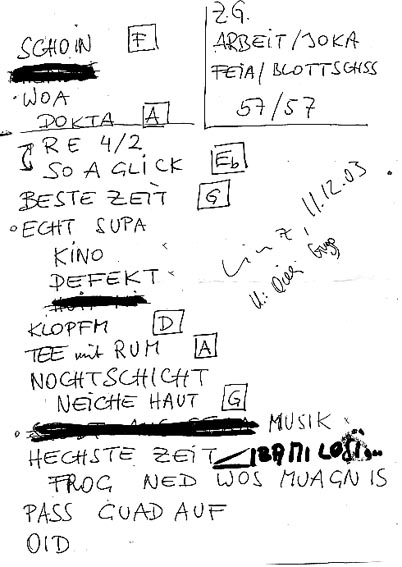 SCHOIN F
WOA
DOKTA A
RE 4/2
SO A GLICK Eb
BESTE ZEIT G
ECHT SUPA
KINO
DEFEKT
KLOPFM D
TEE mit RUM A
NOCHTSCHICHT
NEICHE HAUT G
MUSIK
HECHSTE ZEIT
FROG NED WOS MUAGN IS
PASS GUAD AUF
OID
Z.G.
ARBEIT/JOKA
FEIA/
57/57
Linz, 11.12.03